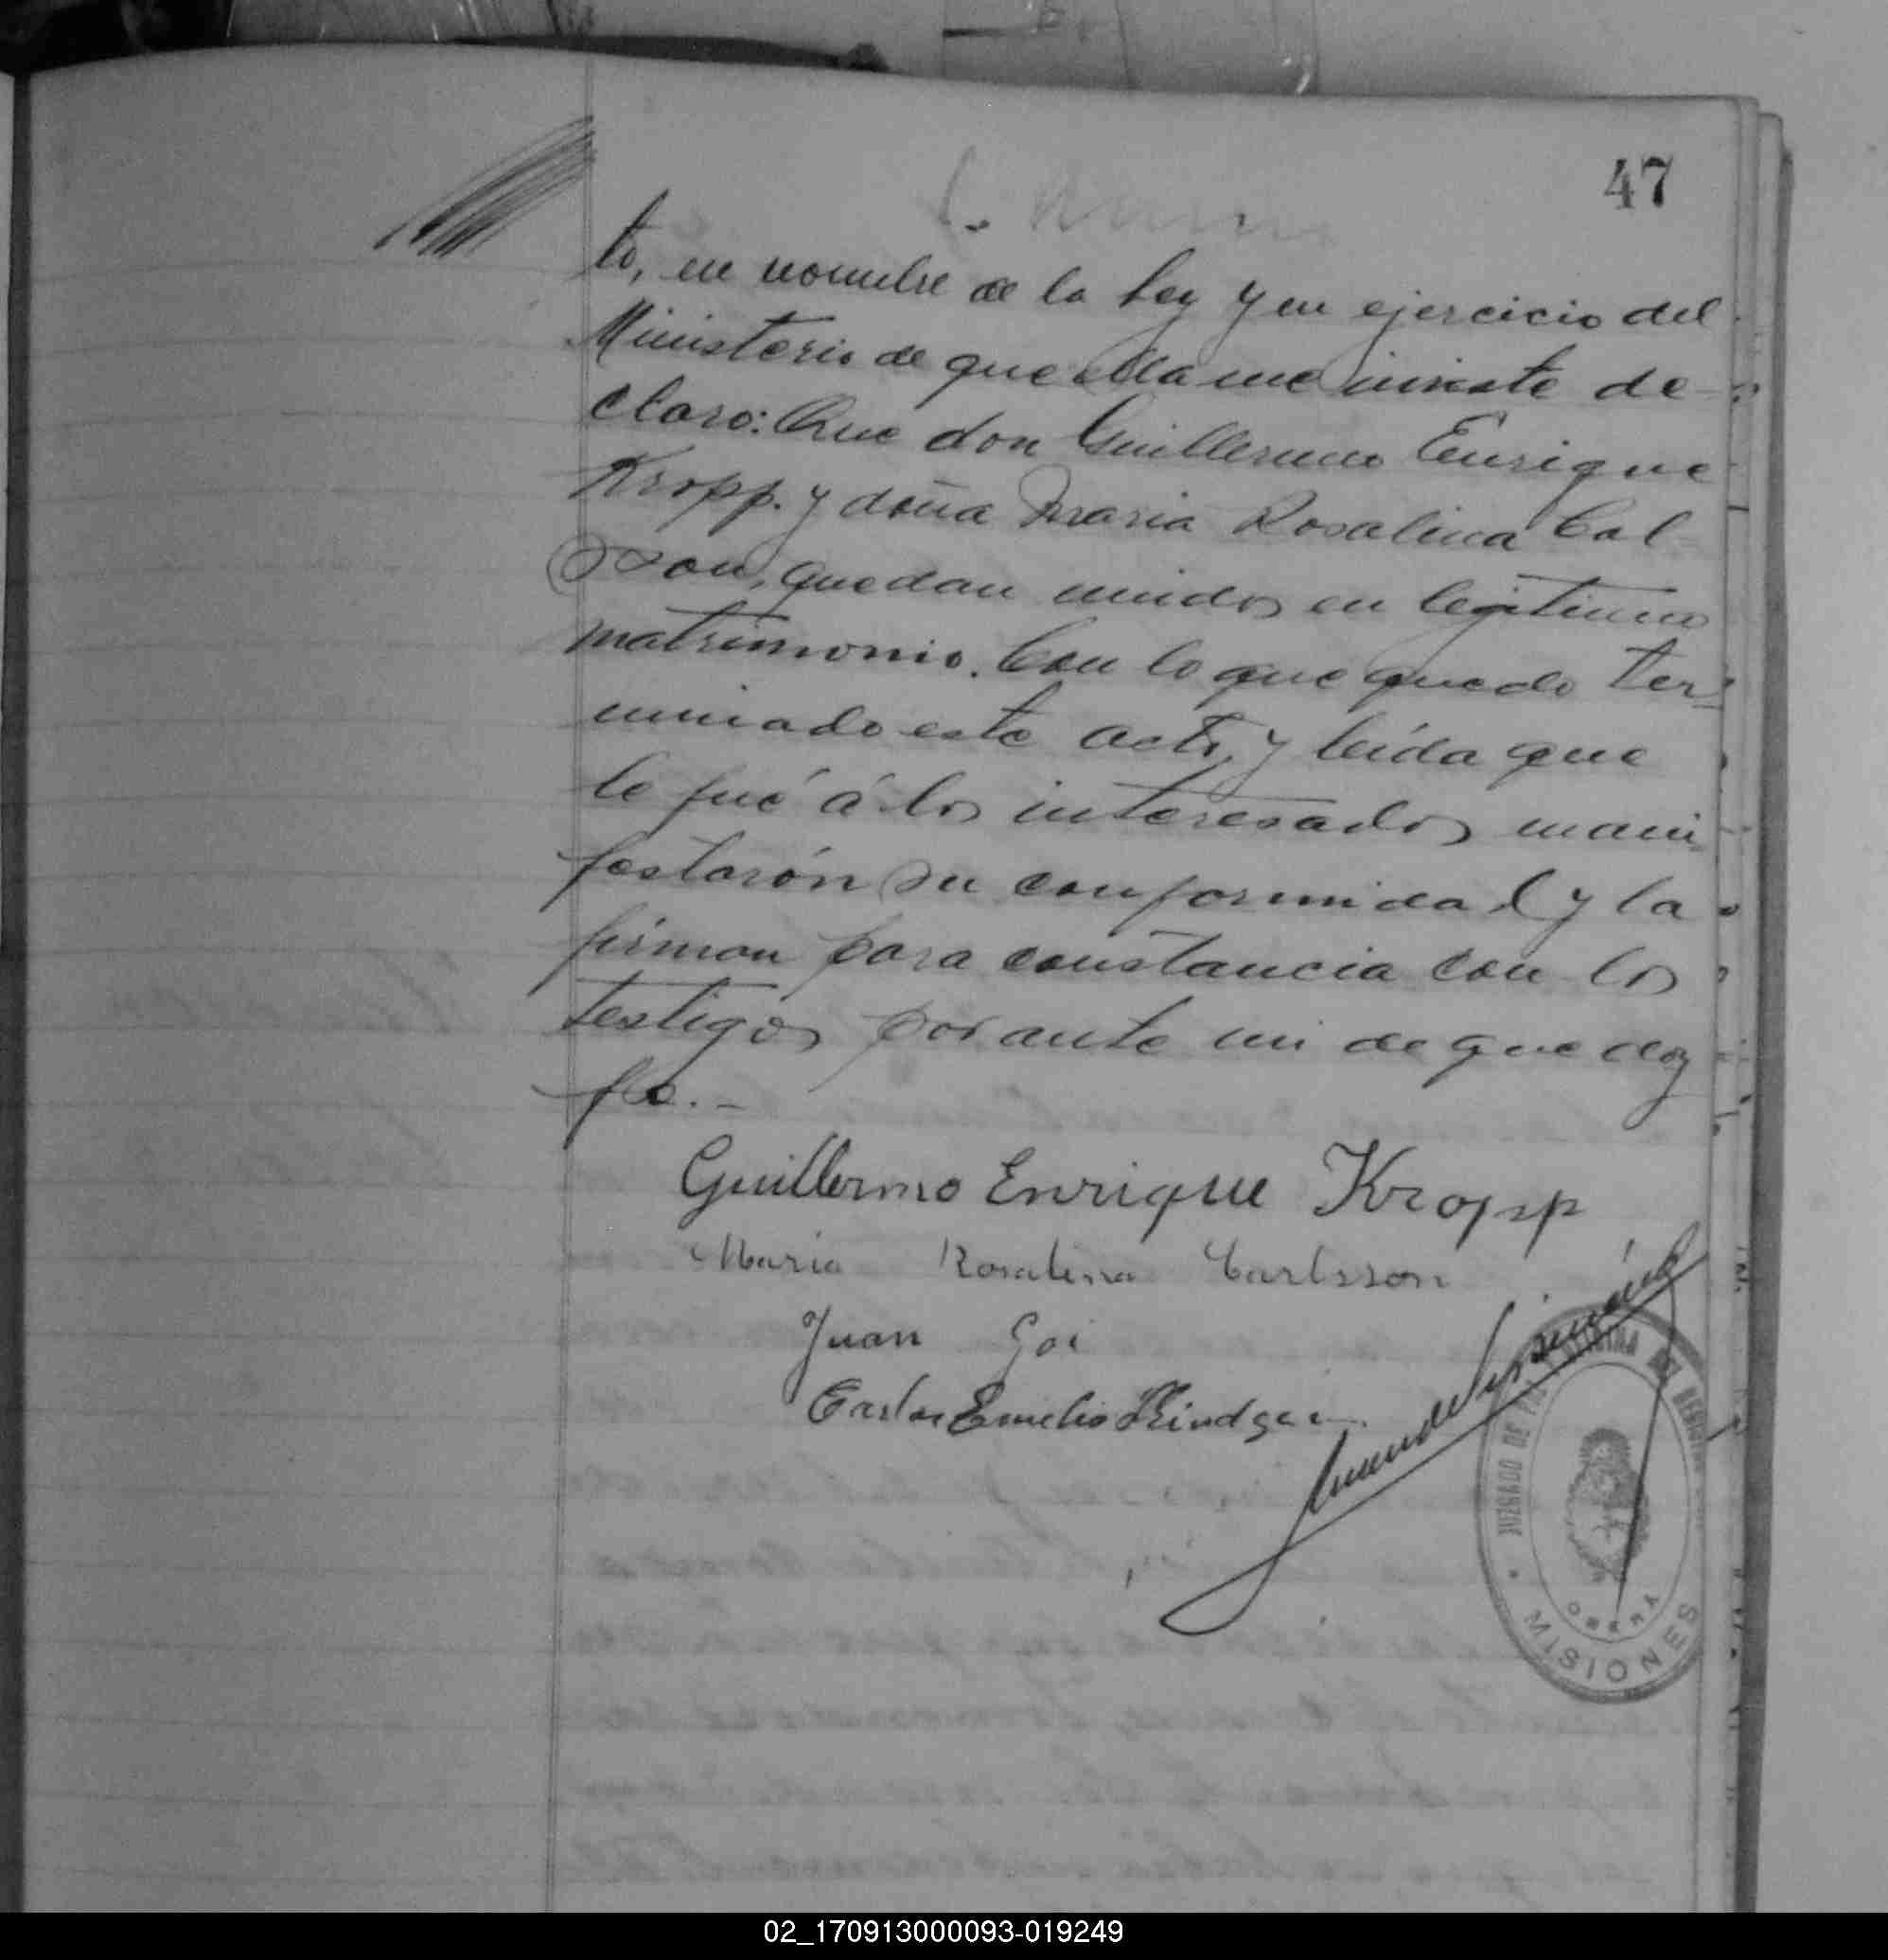 47
to, en nombre de la Ley y en ejercicio del
Ministerio de que ella me inviste de
claro: Que don Guillermo Enrique
Kropp. y doña Maria Rosalina Cal
sson, quedan unidos en legitimo
matrimonio. Con lo que quedo ter
minado este acto, y leída que
le fué á los interesados mani
festarón su conformidad y la
firman para constancia con los
testigos por ante mi de que doy
fé.-
Guillermo Enrique Kropp
Maria Rosalina Carlsson
Juan Goi
Carlos Emelio Kindgen
JUZGADO DE PAZ OFICINA DEL
OBERÁ
MISIONES
02_170913000093-019249